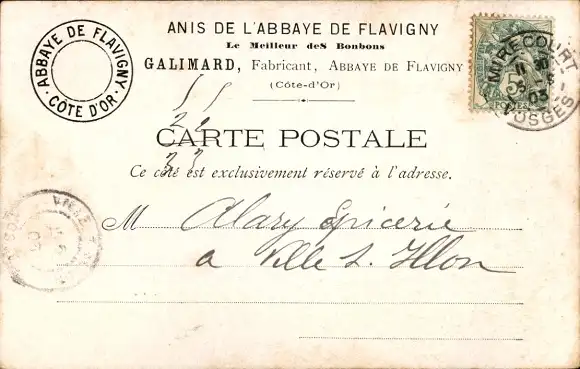 ABBAYE DE FLAVIGNY
· CÔTE D'OR ·
ANIS DE L'ABBAYE DE FLAVIGNY
Le Meilleur deS Bonbons
GALIMARD, Fabricant, ABBAYE DE FLAVIGNY
(Côte-d'Or)
MIRECOURT
03
VOSGES
5
POSTES
CARTE POSTALE
Ce côté est exclusivement réservé à l'adresse.
M Alary Epicerie
a Ville s. Illon